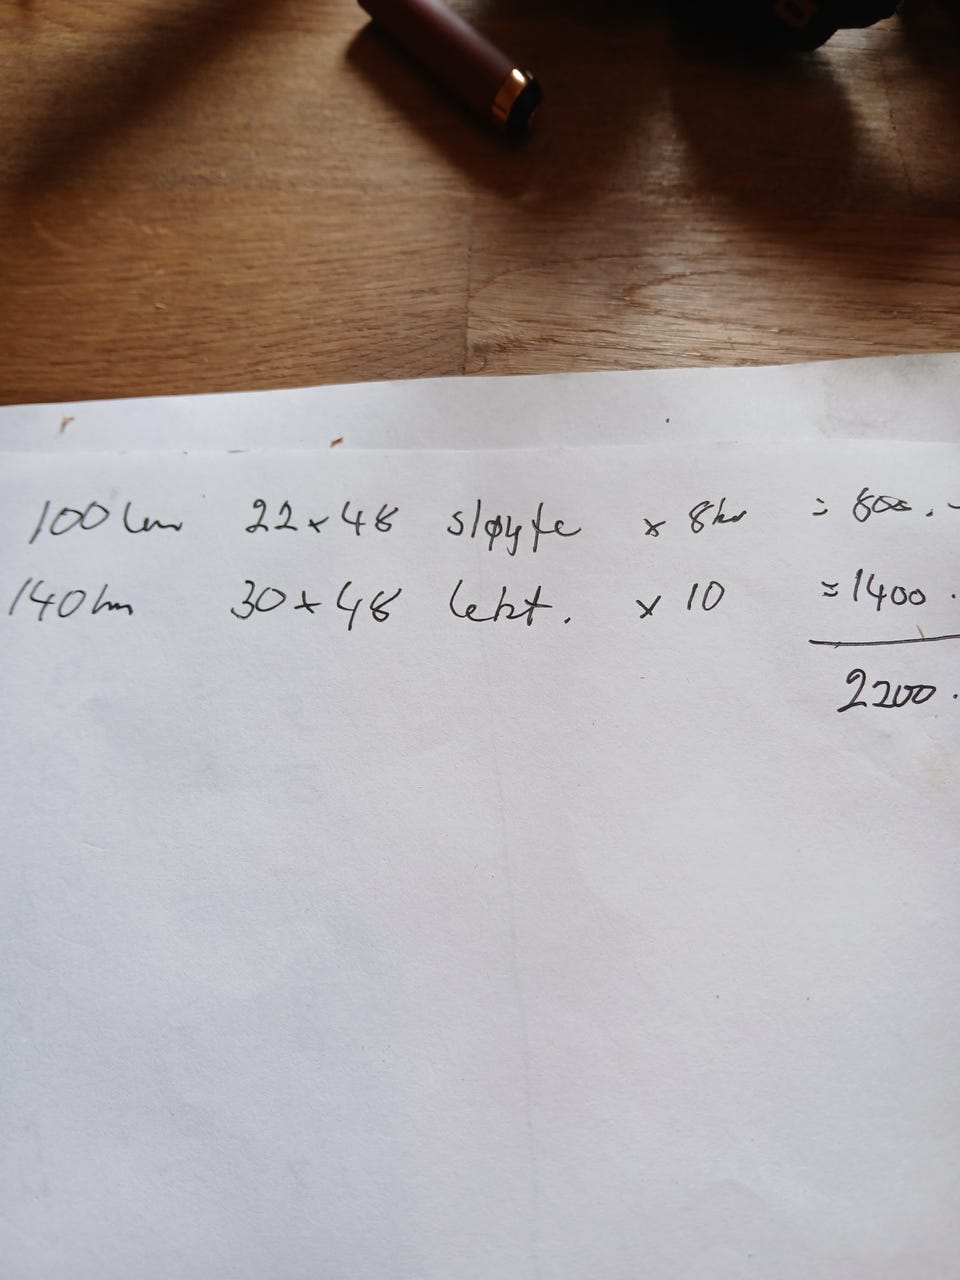 100 lm 22x48 sløyfe x 8kr = 800.-
140 lm 30x48 lekt. x 10 = 1400.
2200.